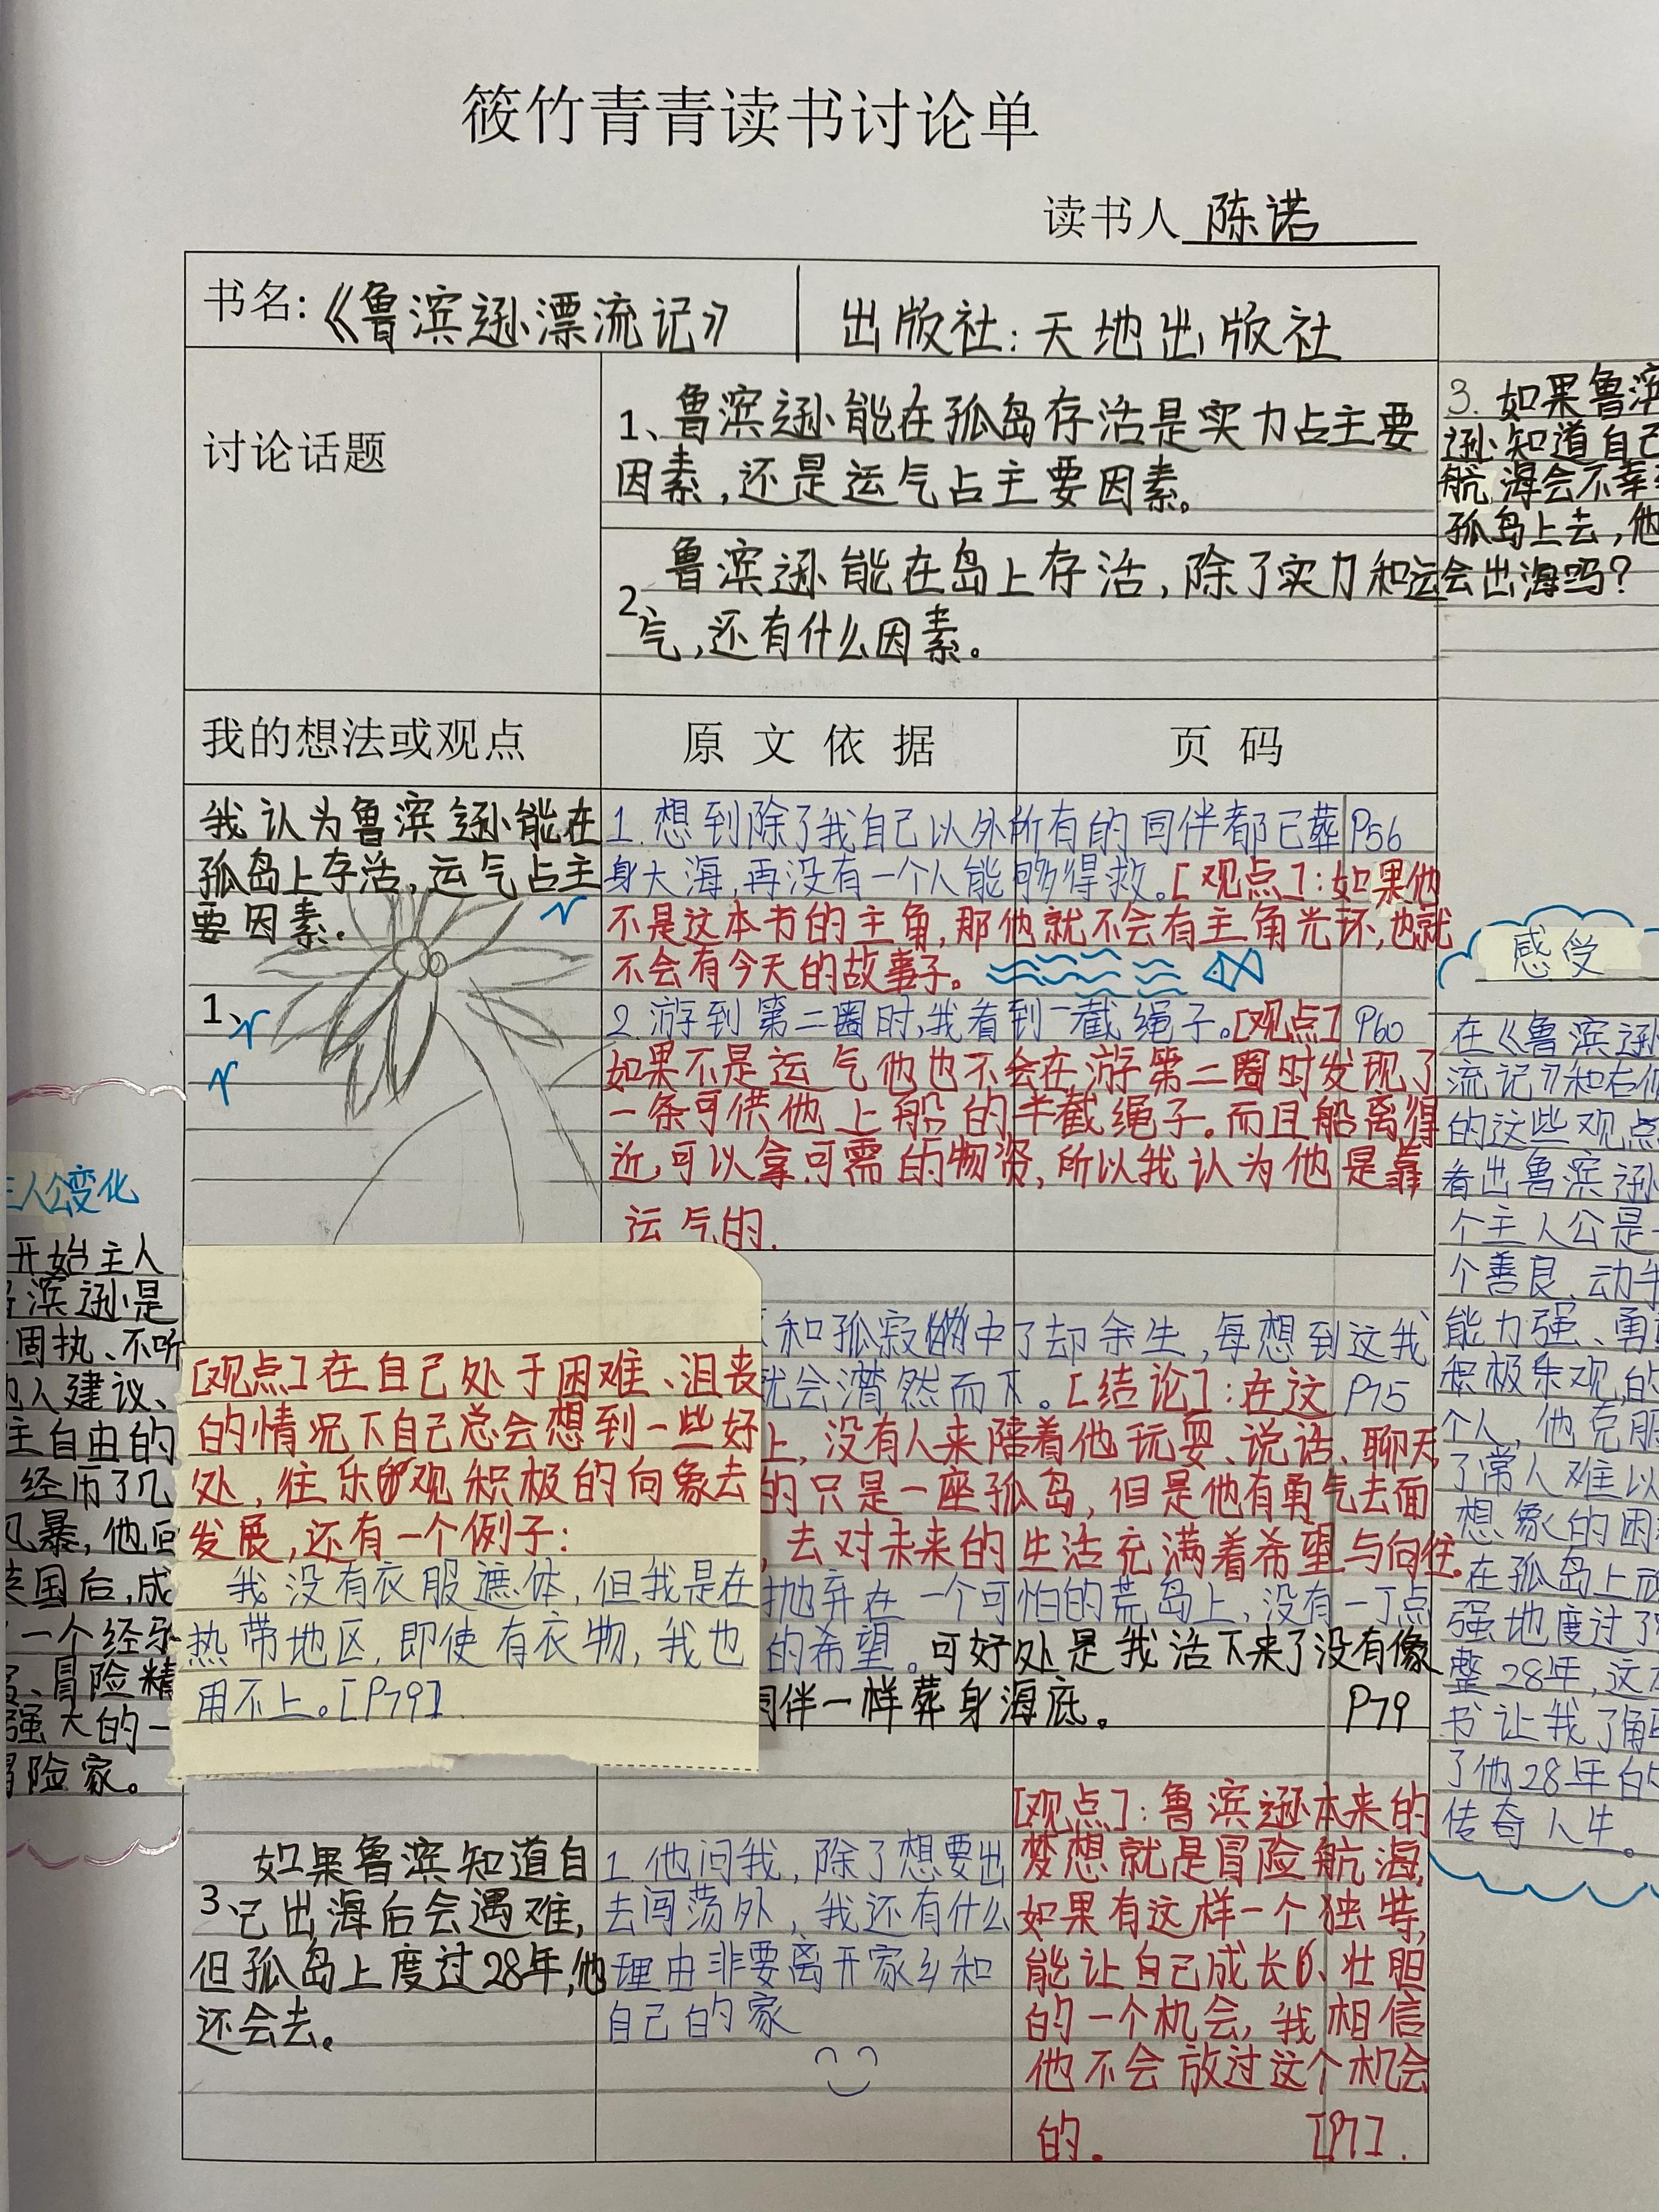 筱竹青青读书讨论单
读书人 陈诺
书名：《鲁滨逊漂流记》 出版社：天地出版社
讨论话题
1、鲁滨逊能在孤岛存活是实力占主要
因素，还是运气占主要因素。
2、鲁滨逊能在岛上存活，除了实力和运
气，还有什么因素。
3. 如果鲁滨
逊知道自己
航海会不幸
孤岛上去，他
会出海吗？
我的想法或观点
原文依据
页码
我认为鲁滨逊能在
孤岛上存活，运气占主
要因素.
1、
1. 想到除了我自己以外所有的同伴都已葬 P56
身大海，再没有一个人能够得救。[观点]：如果他
不是这本书的主角，那他就不会有主角光环，也就
不会有今天的故事子。
2. 游到第二圈时，我看到一截绳子。[观点] P60
如果不是运气他也不会在游第二圈时发现了
一条可供他上船的半截绳子。而且船离得
近，可以拿可需的物资，所以我认为他是靠
运气的.
[观点]在自己处于困难、沮丧
的情况下自己总会想到一些好
处，往乐观积极的向象去
发展，还有一个例子：
我没有衣服遮体，但我是在
热带地区，即使有衣物，我也
用不上。[P79]
和孤寂的中了却余生，每想到这我
就会潸然而下。[结论]：在这 P75
上，没有人来陪着他玩耍、说话、聊天，
的只是一座孤岛，但是他有勇气去面
，去对未来的生活充满着希望与向往。
抛弃在一个可怕的荒岛上，没有一丁点
的希望。可好处是我活下来了没有像
同伴一样葬身海底。 P79
3、如果鲁滨知道自
己出海后会遇难，
但孤岛上度过28年，他
还会去。
1. 他问我，除了想要出
去闯荡外，我还有什么
理由非要离开家乡和
自己的家
[观点]：鲁滨逊本来的
梦想就是冒险航海，
如果有这样一个独等，
能让自己成长、壮胆
的一个机会，我相信
他不会放过这个机会
的. [P7].
主人公变化
开始主人
鲁滨逊是
固执、不听
他人建议、
主自由的
经历了几
风暴，他回
英国后，成
一个经乐
、冒险精
强大的一
冒险家。
感受
在《鲁滨逊
流记》和右侧
的这些观点
看出鲁滨逊
个主人公是一
个善良、动手
能力强、勇敢
积极乐观的
个人，他克服
了常人难以
想象的困
在孤岛上顽
强地度过了
整28年，这本
书让我了解
了他28年的
传奇人生。